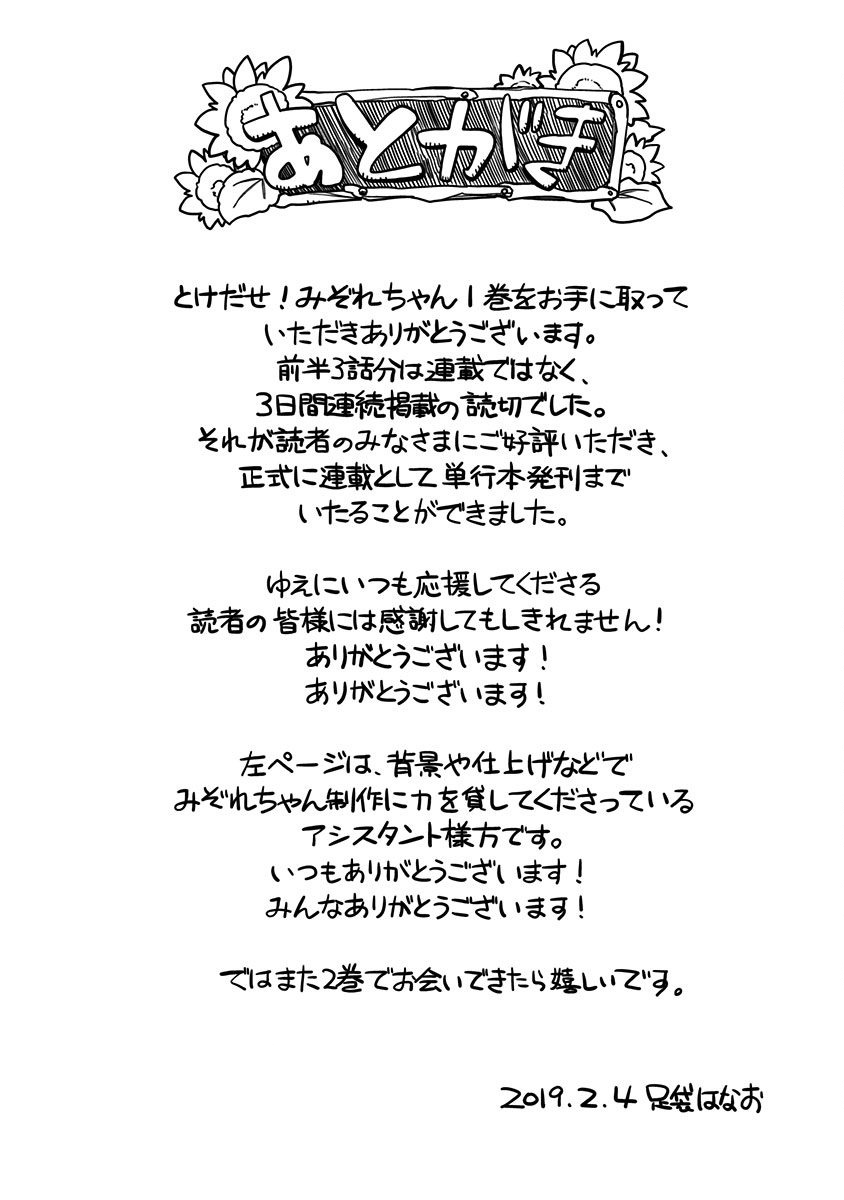 あとがき
とけだせ！みぞれちゃん1巻をお手に取って
いただきありがとうございます。
前半3話分は連載ではなく、
3日間連続掲載の読切でした。
それが読者のみなさまにご好評いただき、
正式に連載として単行本発刊まで
いたることができました。
ゆえにいつも応援してくださる
読者の皆様には感謝してもしきれません！
ありがとうございます！
ありがとうございます！
左ページは、背景や仕上げなどで
みぞれちゃん制作に力を貸してくださっている
アシスタント様方です。
いつもありがとうございます！
みんなありがとうございます！
ではまた2巻でお会いできたら嬉しいです。
2019.2.4 足袋はなお